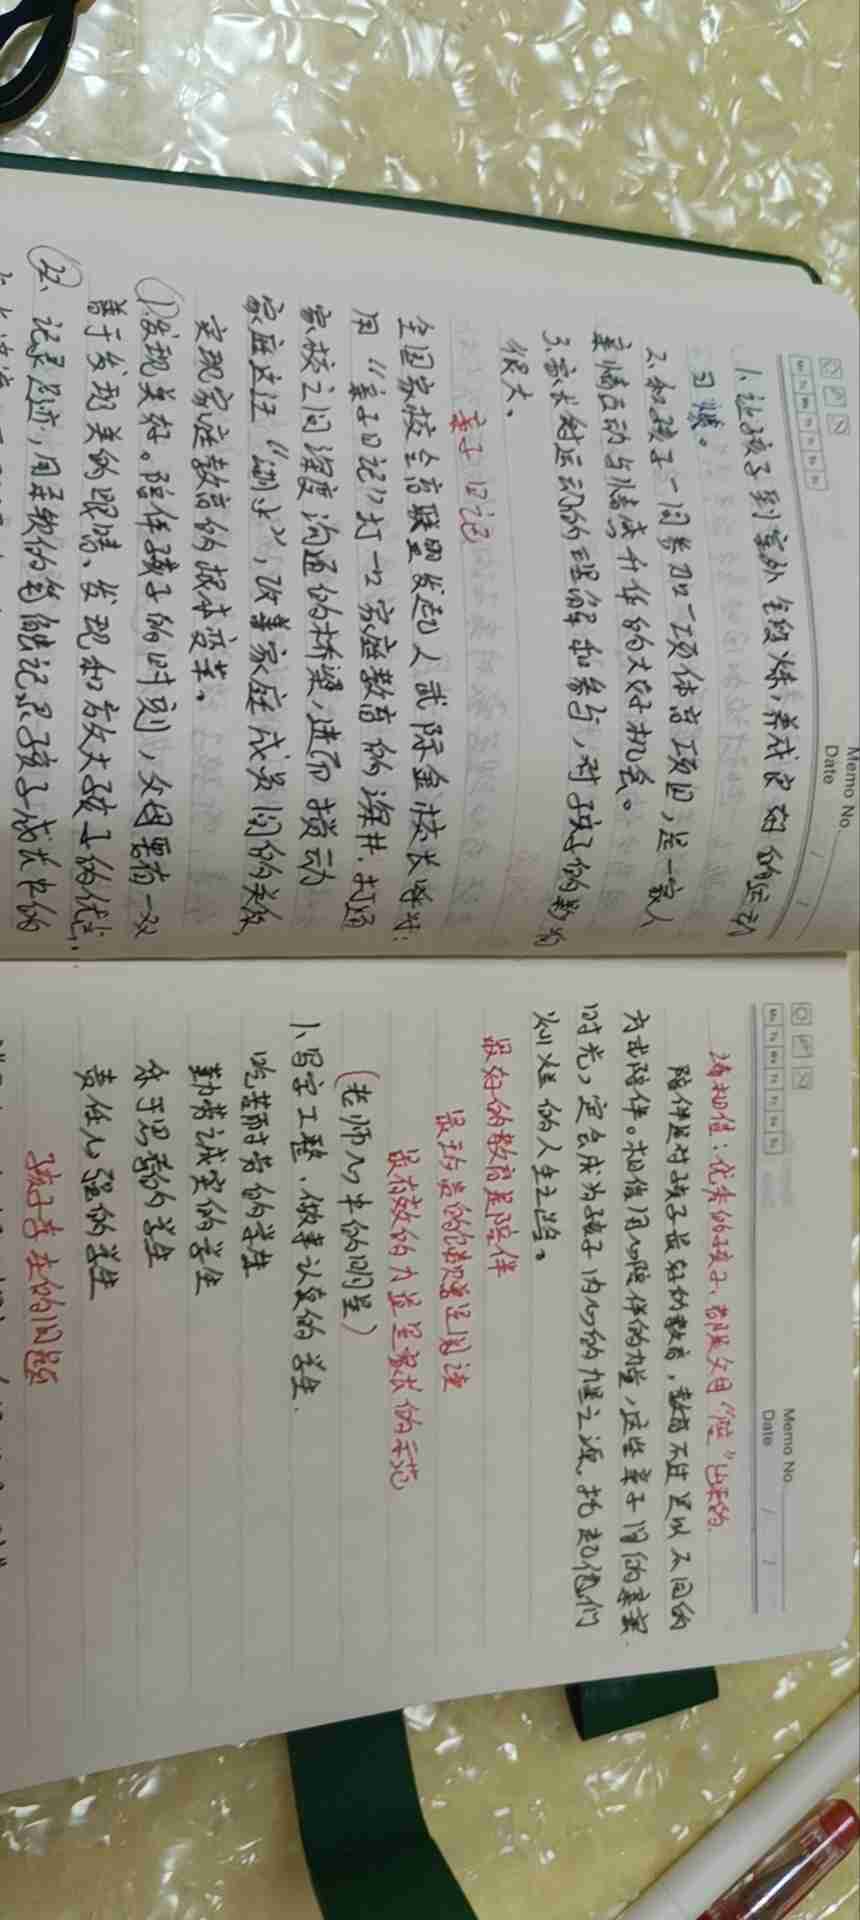 Memo No.
Date
1、让孩子到室外去锻炼,养成良好的运动
习惯。
2、和孩子一同参加一项体育项目,是一家人
亲情互动与情感升华的大好机会。
3、家长对运动的理解和参与,对孩子的影响
很大、
亲子日记
全国家校合育联盟发起人武际金校长呼吁:
用“亲子日记”打一口家庭教育的深井,打通
家校之间深度沟通的桥梁,进而撬动
家庭这汪“湖水”,改善家庭成员间的关系,
实现家庭教育的根本变革。
①发现美好。陪伴孩子的时刻,父母要有一双
善于发现美的眼睛、发现和放大孩子的优点、
②、记录足迹,用柔软的笔触记录孩子成长中的
Memo No.
Date
请相信:优秀的孩子,都是父母“陪”出来的
陪伴是对孩子最好的教育,教育不过是以不同的
方式陪伴。相信用心陪伴的力量,这些亲子间的亲密
时光,定会成为孩子内心的力量之源,托起他们
灿烂的人生之路。
最好的教育是陪伴
是阅读
最有效的力量是家长的示范
(老师心中的明星)
1、写字工整、做事认真的学生、
吃苦耐劳的学生
勤劳诚实的学生
乐于思考的学生
责任心强的学生
孩子存在的问题